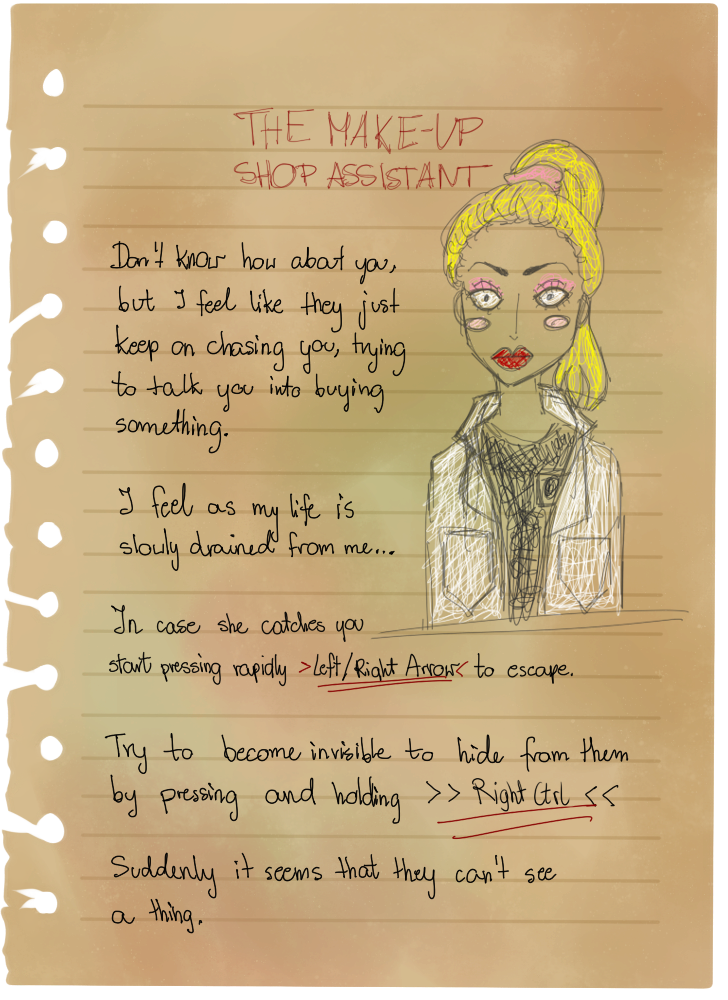 THE MAKE-UP
SHOP ASSISTANT
Don't know how about you,
but I feel like they just
keep on chasing you, trying
to talk you into buying
something.
I feel as my life is
slowly drained from me...
In case she catches you
start pressing rapidly >Left/Right Arrow< to escape.
Try to become invisible to hide from them
by pressing and holding >> Right Ctrl <<
Suddenly it seems that they can't see
a thing.